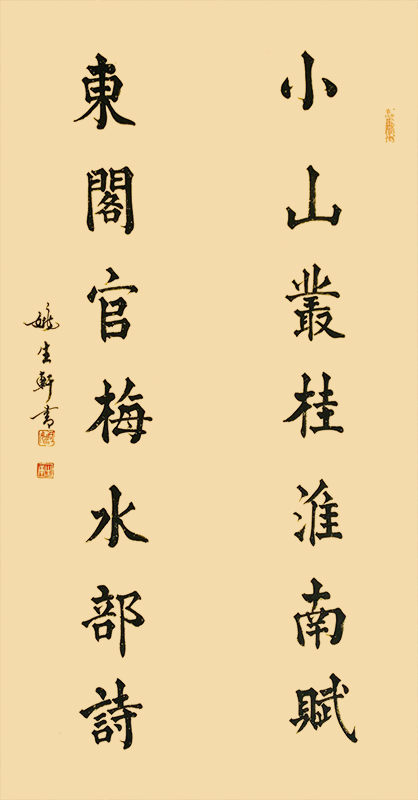 小山叢桂淮南賦
東閣官梅水部詩
姚生軒書